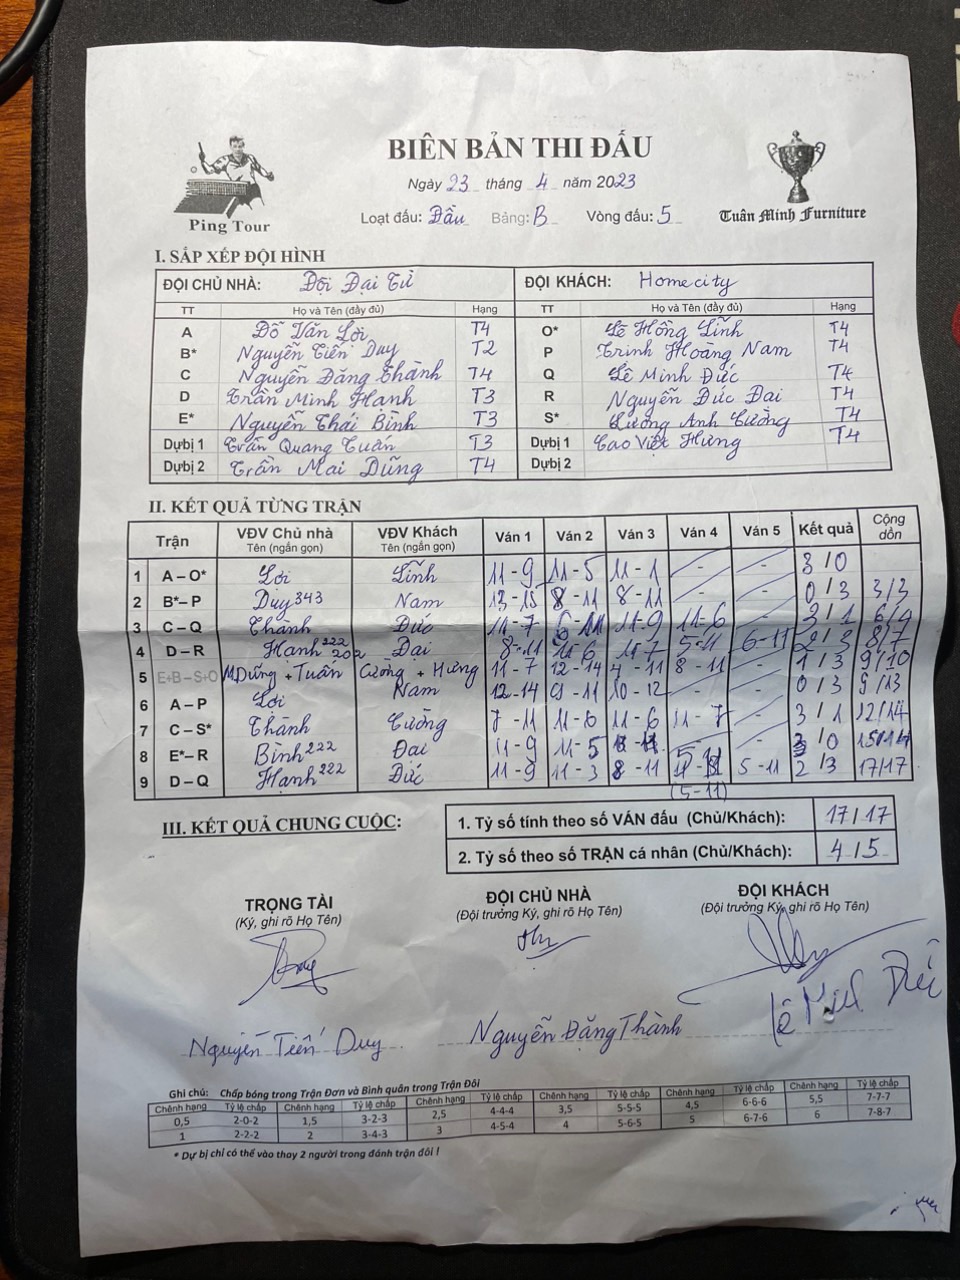 BIÊN BẢN THI ĐẤU
Ngày 23 tháng 4 năm 2023
Loạt đấu: Đầu Bảng: B Vòng đấu: 5
Ping Tour
Tuân Minh Furniture
I. SẮP XẾP ĐỘI HÌNH
ĐỘI CHỦ NHÀ: Đội Đại Từ ĐỘI KHÁCH: Homecity
TT Họ và Tên (đầy đủ) Hạng TT Họ và Tên (đầy đủ) Hạng
A Đỗ Văn Lợi T4 O* Lê Hồng Lĩnh T4
B* Nguyễn Tiến Duy T2 P Trinh Hoàng Nam T4
C Nguyễn Đăng Thành T4 Q Lê Minh Đức T4
D Trần Minh Hạnh T3 R Nguyễn Đức Đại T4
E* Nguyễn Thái Bình T3 S* Lương Anh Cường T4
Dựbị 1 Trần Quang Tuấn T3 Dựbị 1 Cao Việt Hưng T4
Dựbị 2 Trần Mai Dũng T4 Dựbị 2
II. KẾT QUẢ TỪNG TRẬN
Trận VĐV Chủ nhà Tên (ngắn gọn) VĐV Khách Tên (ngắn gọn) Ván 1 Ván 2 Ván 3 Ván 4 Ván 5 Kết quả Cộng dồn
1 A – O* Lợi Lĩnh 11 - 9 11 - 5 11 - 1 - - 3 / 0
2 B*– P Duy 343 Nam 13 - 15 8 - 11 8 - 11 - - 0 / 3 3/3
3 C – Q Thành Đức 11 - 7 11 - 9 11 - 6 - 3 / 1 6/4
4 D – R Hạnh 222 Đại 8 - 11 11 - 6 11 - 7 5 - 11 6 - 11 2 / 3 8/7
5 E+B – S+O M.Dũng + Tuấn Cường + Hưng 11 - 7 12 - 14 4 - 11 8 - 11 - 1 / 3 9/10
6 A – P Lợi Nam 12 - 14 9 - 11 10 - 12 - - 0 / 3 9/13
7 C – S* Thành Cường 7 - 11 11 - 6 11 - 7 - 3 / 1 12/14
8 E*– R Bình 222 Đại 11 - 9 11 - 5 - - 3 / 0 15/14
9 D – Q Hạnh 222 Đức 11 - 9 11 - 3 8 - 11 5 - 11 2 / 3 17/17
(5 - 11)
III. KẾT QUẢ CHUNG CUỘC:
1. Tỷ số tính theo số VÁN đấu (Chủ/Khách): 17 / 17
2. Tỷ số theo số TRẬN cá nhân (Chủ/Khách): 4 / 5
TRỌNG TÀI ĐỘI CHỦ NHÀ ĐỘI KHÁCH
(Ký, ghi rõ Họ Tên) (Đội trưởng Ký, ghi rõ Họ Tên) (Đội trưởng Ký, ghi rõ Họ Tên)
Nguyễn Tiến Duy Nguyễn Đăng Thành Lê Minh Đức
Ghi chú: Chấp bóng trong Trận Đơn và Bình quân trong Trận Đôi
Chênh hạng Tỷ lệ chấp Chênh hạng Tỷ lệ chấp Chênh hạng Tỷ lệ chấp Chênh hạng Tỷ lệ chấp Chênh hạng Tỷ lệ chấp Chênh hạng Tỷ lệ chấp
0,5 2-0-2 1,5 3-2-3 2,5 4-4-4 3,5 5-5-5 4,5 6-6-6 5,5 7-7-7
1 2-2-2 2 3-4-3 3 4-5-4 4 5-6-5 5 6-7-6 6 7-8-7
* Dự bị chỉ có thể vào thay 2 người trong đánh trận đôi !